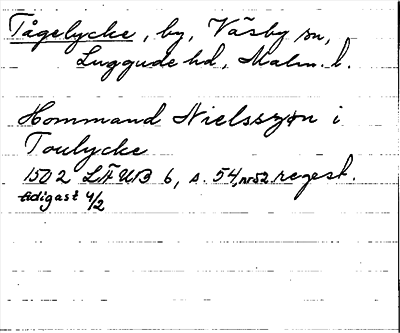 Tågelycke, by, Väsby sn,
Luggude hd, Malm. l.
Hommand Nielsszøn i
Toulycke
1502 LÄUB 6, s. 54, nr 52 regest.
tidigast 4/2